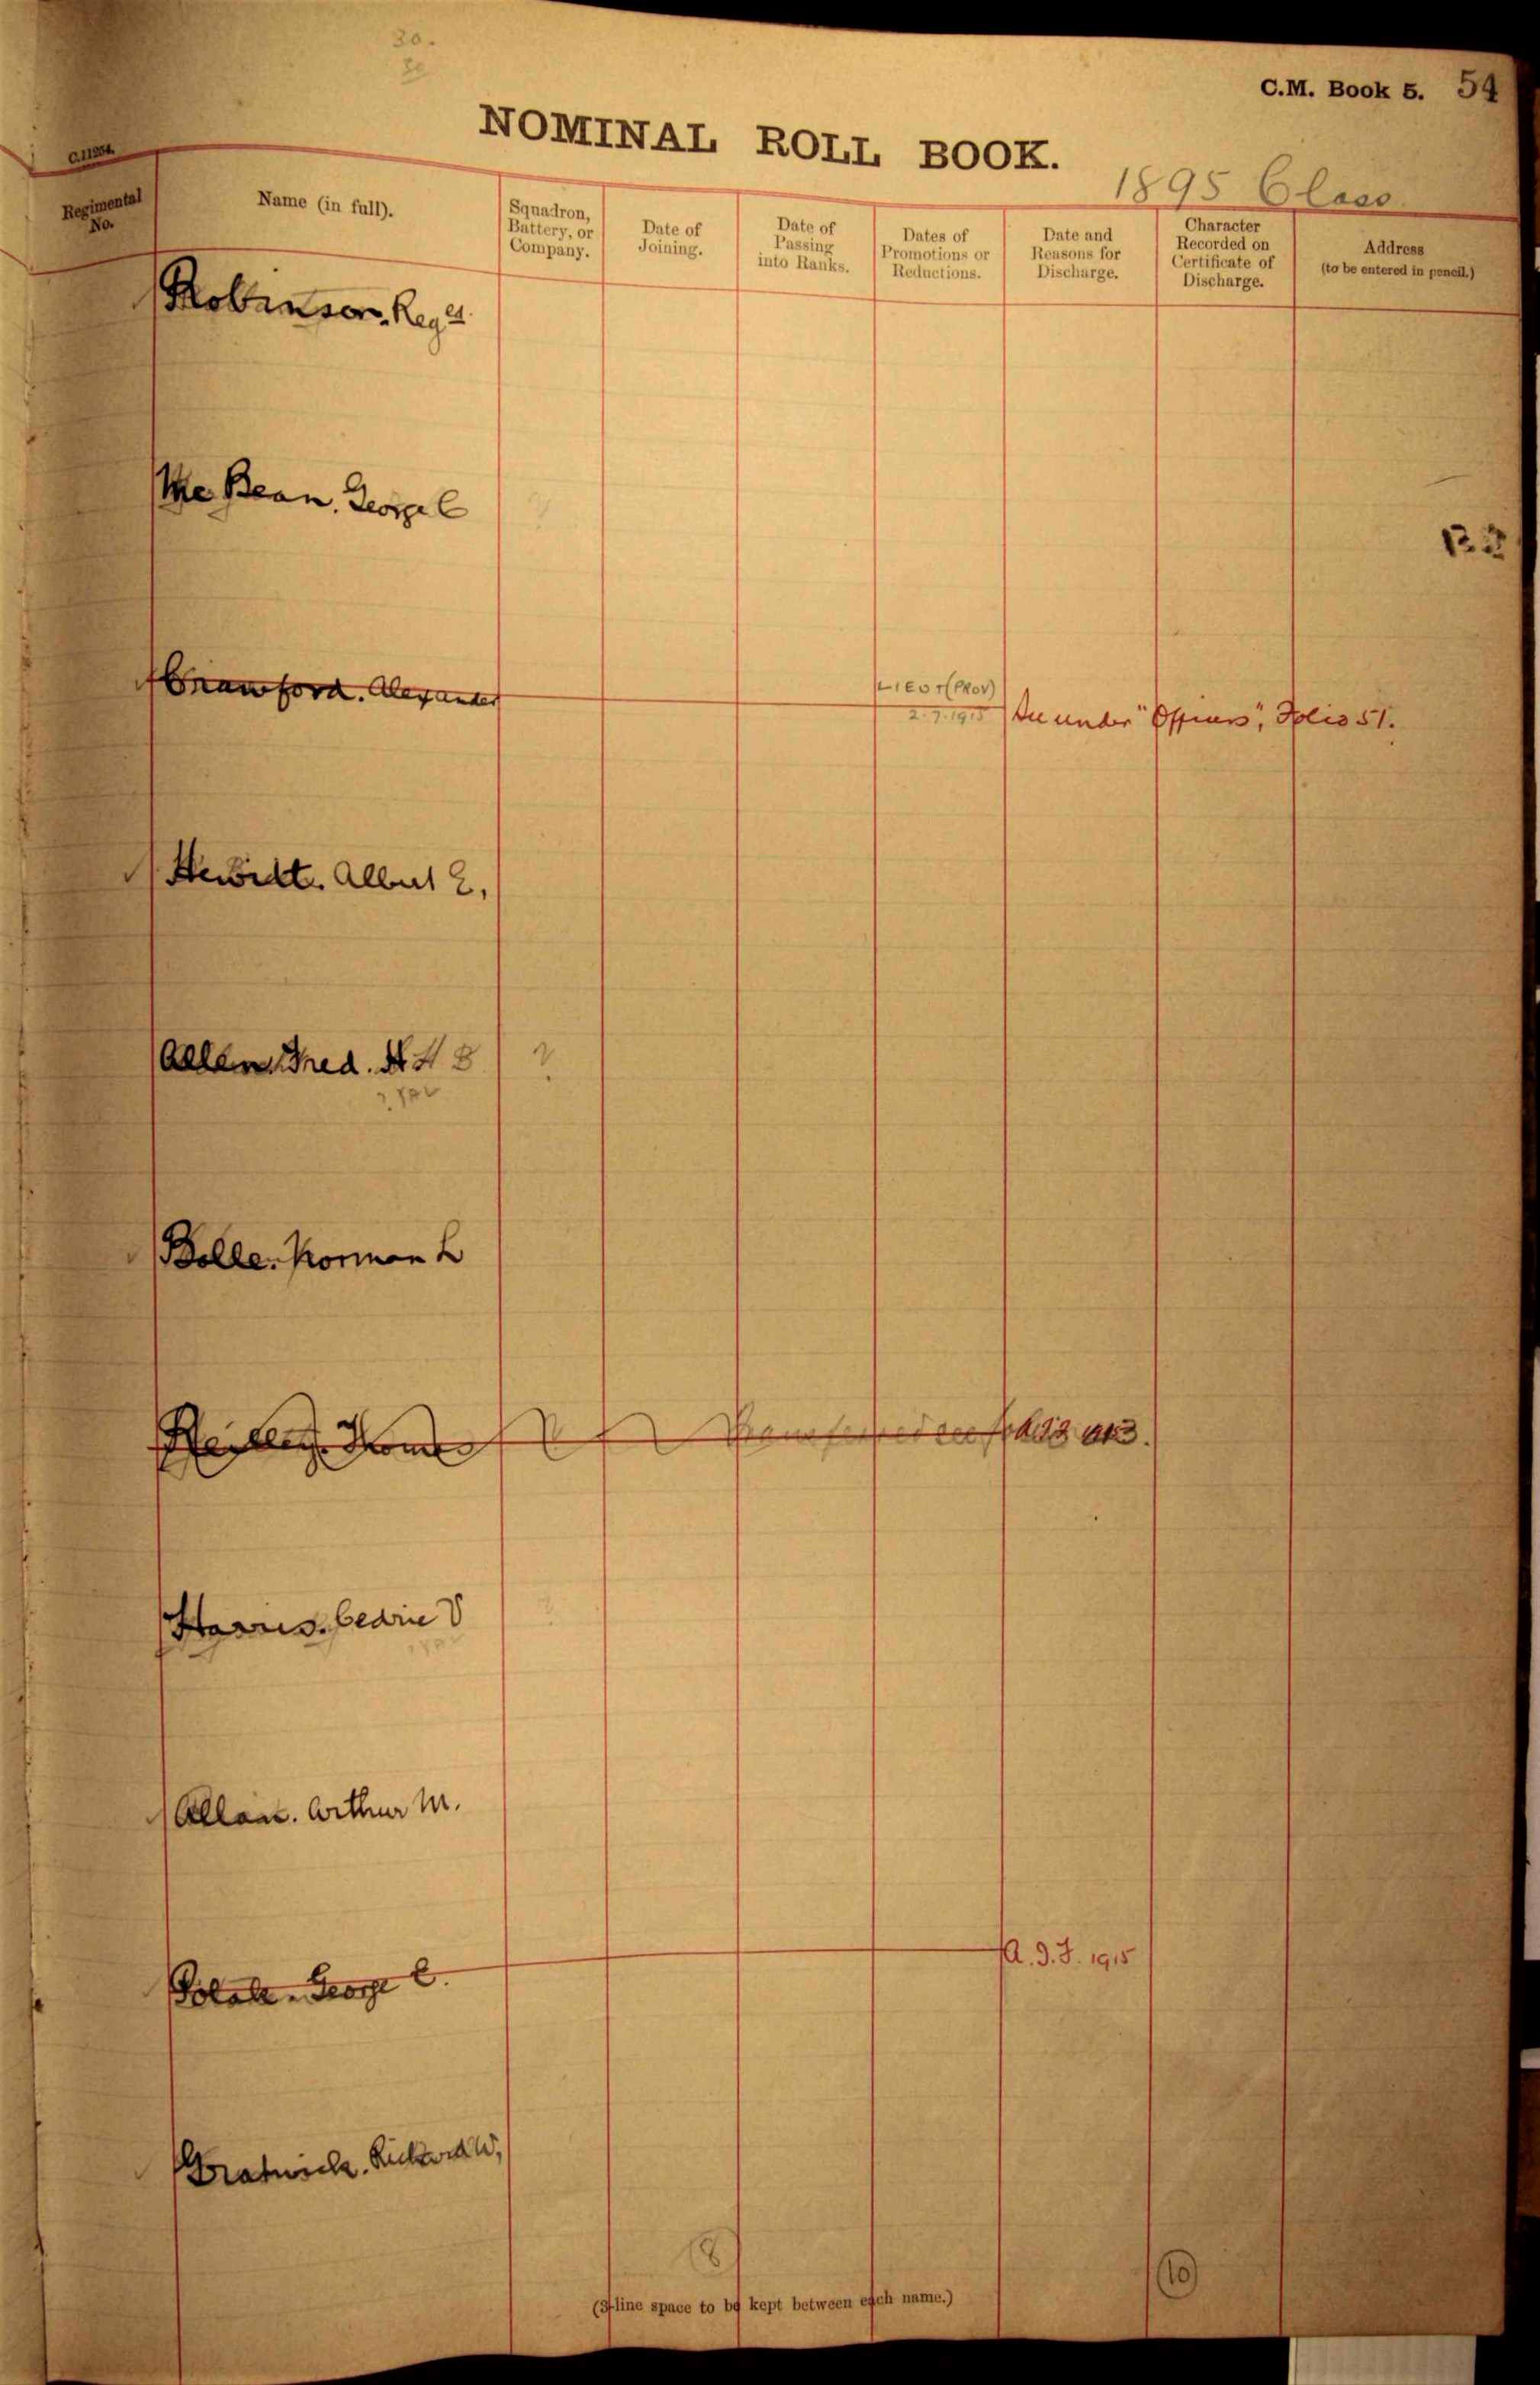 30.
30
C.M. Book 5. 54
NOMINAL ROLL BOOK.
C.11254.
1895 Class
Regimental No.
Name (in full).
Squadron, Battery, or Company.
Date of Joining.
Date of Passing into Ranks.
Dates of Promotions or Reductions.
Date and Reasons for Discharge.
Character Recorded on Certificate of Discharge.
Address (to be entered in pencil.)
Robinson, Regd
McBean, George C
Crawford. Alexander
LIEUT (PROV)
2.7.1915 See under "Officers", Folio 51.
Albert E,
Allen, Fred. H 4 8 ?
Bolle. Norman L
Reilley. Thomas Transferred see folio
Harris. Cedric V
Allan. Arthur M.
George C. A.I.F. 1915
Gratwick. Richard W,
8
10
(3-line space to be kept between each name.)